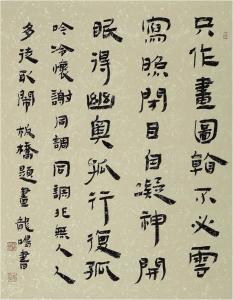 只作畫圖看不必雲
寫照閉目自凝神開
眼得幽奧孤行復孤
吟冷懷謝同調同調非無人人
多徒取鬧 板橋題畫 龍鳴書